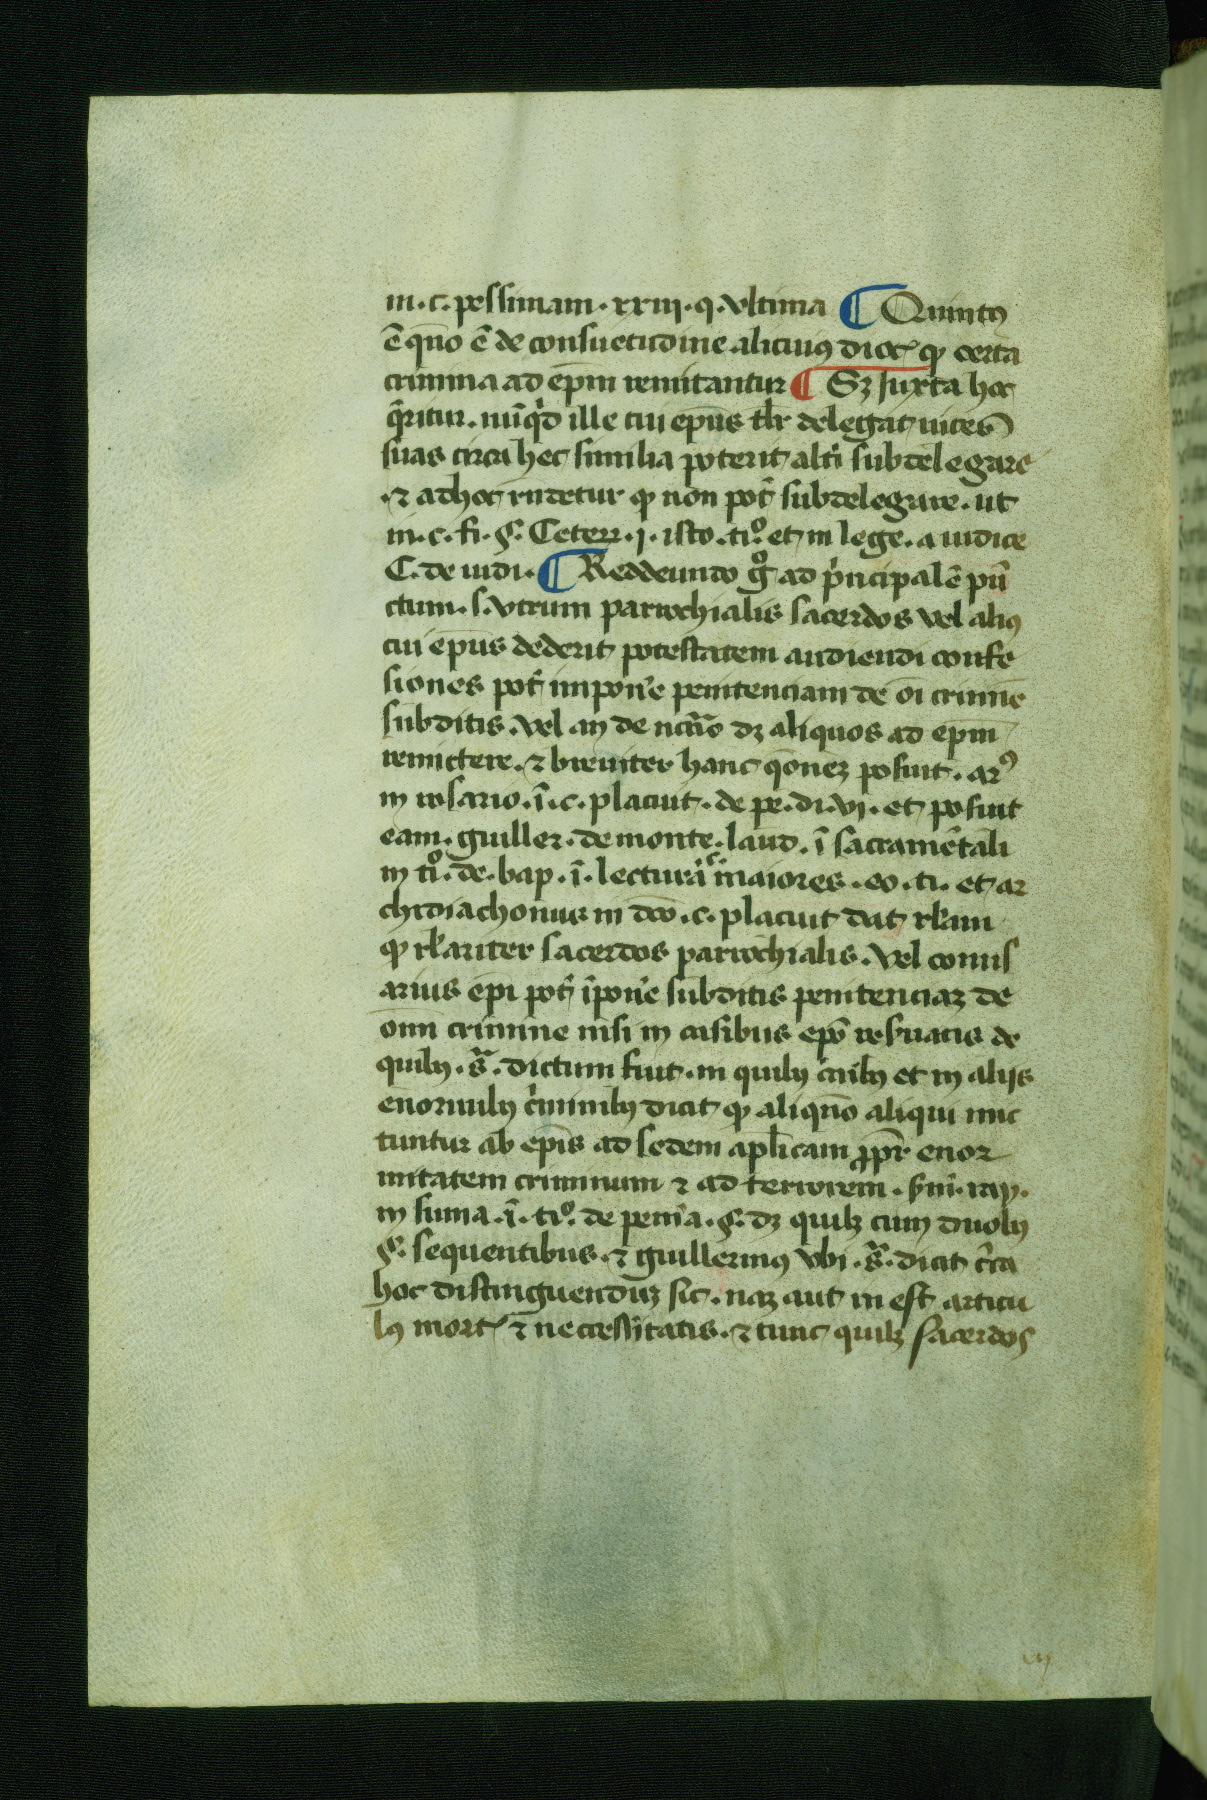 in .c. pessimam .xxiii. q. vltima ¶ Quintꝯ
ē qn̄o ē de consuetudine alicuiꝯ dioc̄ ꝙ certa
crimina ad ep̄m remitantur ¶ Sꝫ iuxta hoc
q̄ritur. nūq̄d ille cui ep̄us tl̄r delegat uices
suas circa hec similia poterit altī subdelegare
⁊ adhoc rn̄detur ꝙ non pot̄ subdelegare. ut
in .c. fi. §. Ceteri .j. isto .tiᵒ. et in lege. a iudice
C. de iudi. ¶ Reddeundo gᵒ ad p̄ncipalē pū
ctum .s. vtrum parrochialis sacerdos vel aliꝯ
cui ep̄us dederit potestatem audiendi confe
siones pot̄ inpon̄e penitenciam de oī crimīe
subditis. vel an de dꝫ aliquos ad ep̄m
remictere. ⁊ breuiter hanc q̄onēꝫ posuit .
in rosario. ī .c. placuit. de pe. di. vi. et posuit
eam. guiller. de monte. laud. ī sacramētali
in tiᵒ. de. bap. ī. lectura maiores .eo. ti. et ar
chidiachonus in dc̄o .c. placuit dat rl̄am
ꝙ rl̄ariter sacerdos parrochialis. vel comis
arius ep̄i pot̄ īpon̄e subditis penitenciaꝫ de
omī crimine nisi in casibus ep̄o res̄uatis de
quibꝯ .sᵃ. dictum fuit. in quibꝯ c̄nibꝯ et in alijs
enormibꝯ c̄iminibꝯ dicit ꝙ aliqn̄o aliqui mic
tuntur ab ep̄is ad sedem apl̄icam ꝓpr̄ enor
mitatem criminum ⁊ ad terrorem. ray.
in suma. ī. tiᵒ. de penīa. §. dꝫ quilꝫ cum duobꝯ
§. sequentibus. ⁊ guillermꝯ vbi .sᵃ. dicit c̄ca
hoc distinguenduꝫ sic. naꝫ aut in est articu
lꝯ mort̄ ⁊ necressitatis. ⁊ tunc quilꝫ sacerdos